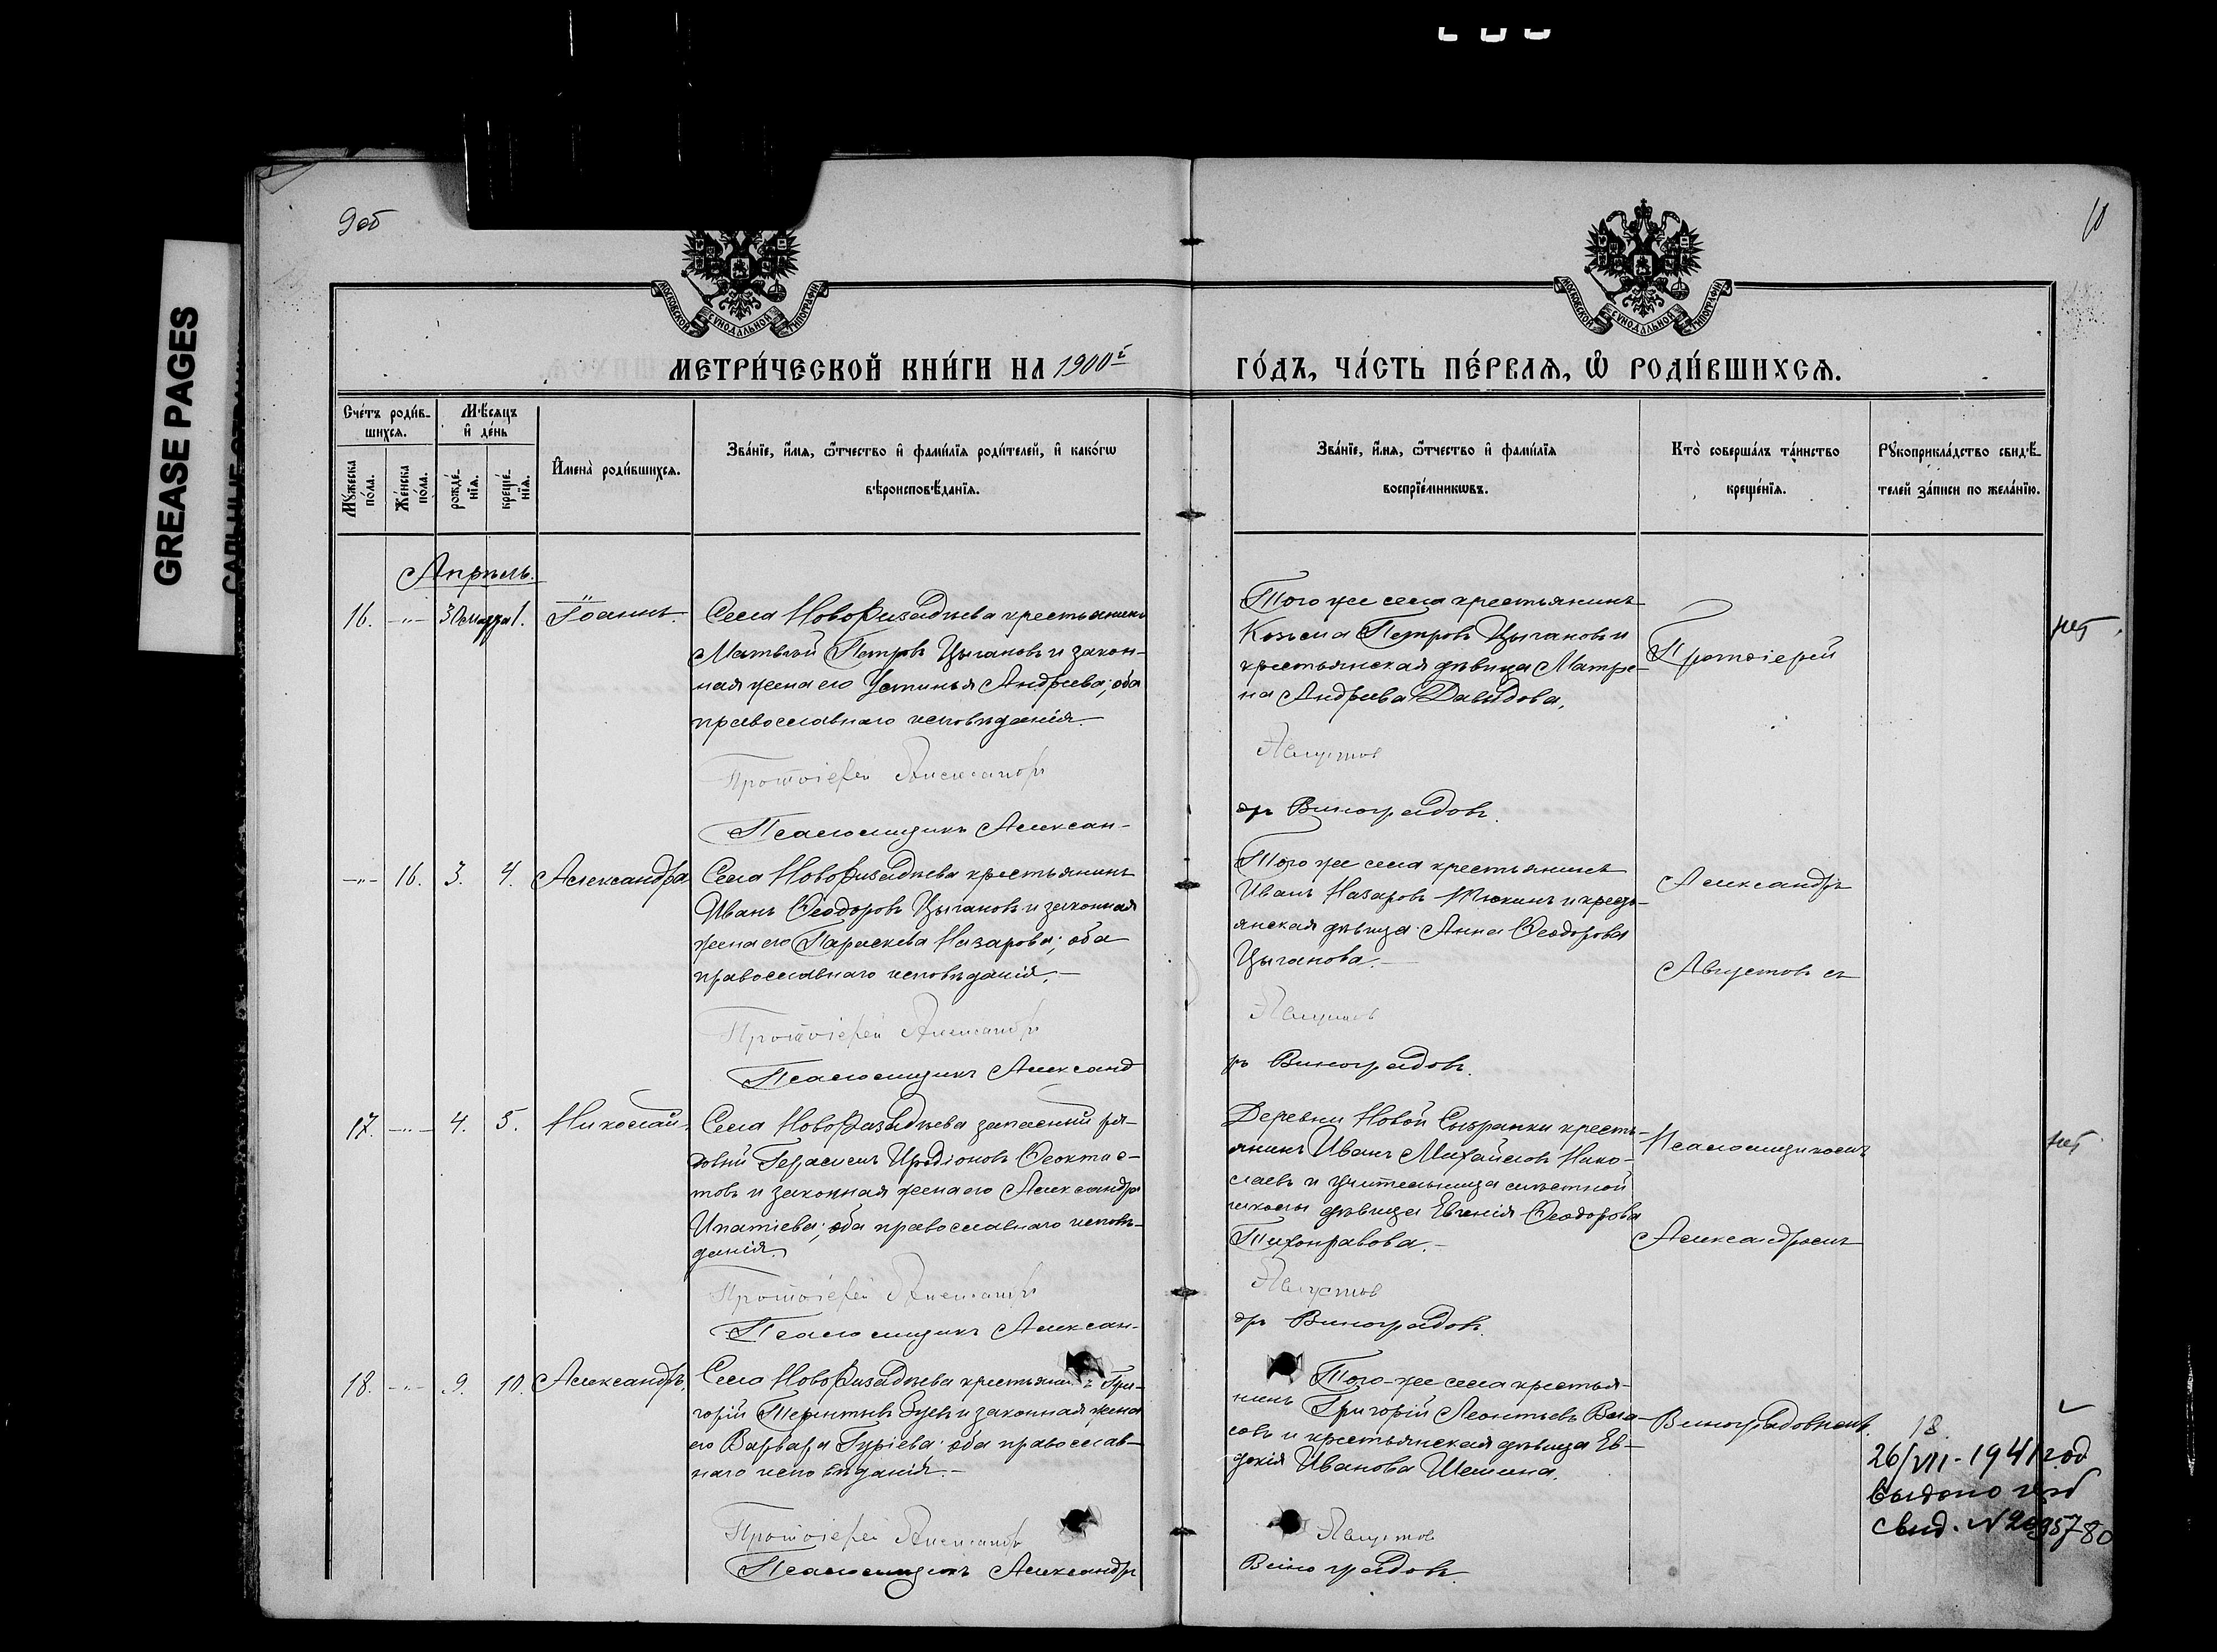 9об
10
GREASE PAGES
МОСКОВСКОЙ СѴНОДАЛЬНОЙ ТИПОГРАФІИ
МОСКОВСКОЙ СѴНОДАЛЬНОЙ ТИПОГРАФІИ
МЕТРИ́ЧЕСКОЙ КНИ́ГИ НА 1900й
ГО́ДЪ, ЧА́СТЬ ПЕ́РВАѦ, Ѡ҆ РОДИ́ВШИХСѦ.
Сче́тъ роди́в-
шихсѧ.
Мꙋ́жеска по́ла.
Же́нска по́ла.
Мѣ́сѧцъ
и҆ де́нь
рожде́-
нїѧ.
креще́-
нїѧ.
И҆мена̀ роди́вшихсѧ.
Зва́нїе, и҆́мѧ, ѻ҆́тчество и҆ фами́лїѧ роди́телей, и҆ како́гѡ
вѣроисповѣ́данїѧ.
Зва́нїе, и҆́мѧ, ѻ҆́тчество и҆ фами́лїѧ
воспрїе́мникѡвъ.
Кто̀ соверша́лъ та́инство
креще́нїѧ.
Рꙋкоприкла́дство свидѣ́-
телей за́писи по жела́нїю.
Апрѣль.
16. -"- 30 марта 1. Іоаннъ.
Села Новофизадѣева крестьянинъ
Матвѣй Петровъ Цыгановъ и закон-
ная жена его Устинья Андреева; оба
православнаго исповѣданія.
Протоіерей Александръ
Псаломщикъ Алексан-
Того же села крестьянинъ
Козьма Петровъ Цыгановъ и
крестьянская дѣвица Матре-
на Андреева Давыдова.
Августов
дръ Виноградовъ.
Протоіерей
нет
-"- 16. 3. 4. Александра
Села Новофизадѣева крестьянинъ
Иванъ Ѳеодоровъ Цыгановъ и законная
жена его Параскева Назарова; оба
православнаго исповѣданія.-
Протоіерей Александръ
Псаломщикъ Александ
Того же села крестьянинъ
Иванъ Назаровъ и кресть-
янская дѣвица Анна Ѳеодорова
Цыганова.-
Августов
ръ Виноградовъ.
Александръ
Августовъ съ
17. -"- 4. 5. Николай.
Села Новофизадѣева запасный ря-
довый Герасимъ Иродіоновъ Ѳеокти с-
товъ и законная жена его Александра
Ипатіева; оба православнаго исповѣ-
данія.
Протоіерей Александръ
Псаломщикъ Алексан-
Деревни Новой Сызранки кресть-
янинъ Иванъ Михайловъ Нико-
лаевъ и учительница мѣстной
школы дѣвица Евгенія Ѳеодорова
Тихонравова.-
Августов
дръ Виноградовъ.
Псаломщикомъ
Александромъ
нет
18. -"- 9. 10. Александръ.
Села Новофизадѣева крестьянинъ Гри-
горій Терентьевъ Зуевъ и законная жена
его Варвара Гуріева; оба православ-
наго исповѣданія.-
Протоіерей Александръ
Псаломщикъ Александръ
Того-же села крестья-
нинъ Григорій Леонтьевъ Вла-
совъ и крестьянская дѣвица Ев-
докія Иванова Шемина.
Августов
Виноградовъ.
Виноградовымъ.
18.
26/VII-1941 год
выдано
свид. №